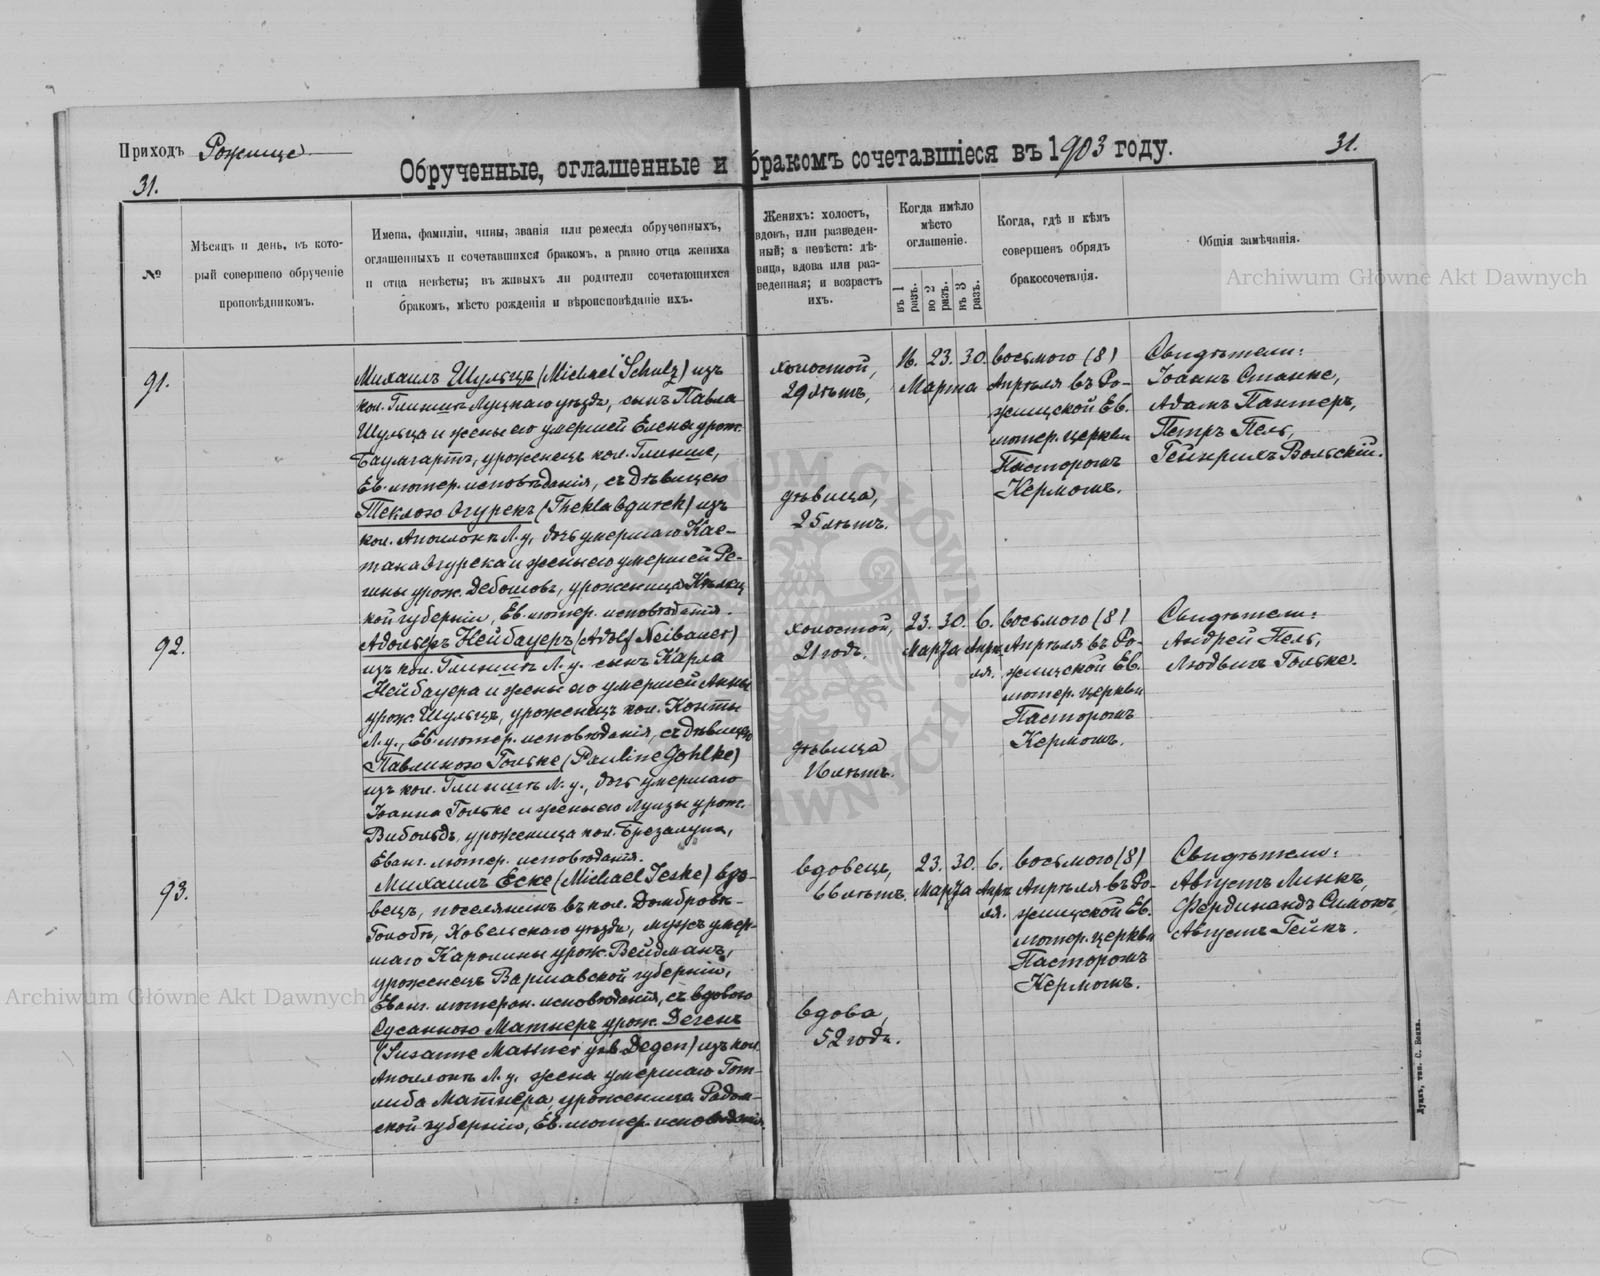 Приходъ Рожище
Обрученные, оглашенные и бракомъ сочетавшіеся въ 1903 году.
31.
31.
№
Мѣсяцъ и день, въ кото-
рый совершено обрученіе
проповѣдникомъ.
Имена, фамиліи, чины, званія или ремесла обрученныхъ,
оглашенныхъ и сочетавшихся бракомъ, а равно отца жениха
и отца невѣсты; въ живыхъ ли родители сочетающихся
бракомъ, мѣсто рожденія и вѣроисповѣданіе ихъ.
Женихъ: холостъ,
вдовъ, или разведен-
ный; а невѣста: дѣ-
вица, вдова или раз-
веденная; и возрастъ
ихъ.
Когда имѣло
мѣсто
оглашеніе.
въ 1 разъ.
во 2 разъ.
въ 3 разъ.
Когда, гдѣ и кѣмъ
совершенъ обрядъ
бракосочетанія.
Общія замѣчанія.
91.
Михаилъ Шульцъ (Michael Schulz) изъ
кол. Глинишъ Луцкаго уѣзда, сынъ Павла
Шульца и жены его умершей Елены урож.
Баумгартъ, уроженецъ кол. Глинише,
Ев. лютер. исповѣданія, съ дѣвицею
Теклою Огурекъ (Thekla Ogurek) изъ
кол. Аполлонъ Л. у., дочь умершаго Кае-
тана Огурека и жены его умершей Ре-
гины урож. уроженица Кѣлец
кой губерніи, Ев. лютер. исповѣданія.
холостой,
29 лѣтъ,
дѣвица,
25 лѣтъ.
16. 23. 30.
Марта
восьмого (8)
Апрѣля въ Ро-
жищской Ев.
лютер. церкви
Пасторомъ
Кермомъ.
Свидѣтели:
Іоаннъ Станке,
Адамъ Пантеръ,
Петръ Пель,
Гейнрихъ Вольскій.
92.
Адольфъ Нейбауеръ (Adolf Neibauer)
изъ кол. Глинишъ Л. у. сынъ Карла
Нейбауера и жены его умершей Анны
урож. Шульцъ, уроженецъ кол.
Л. у., Ев. лютер. исповѣданія, съ дѣвицею
Павлиною Гольке (Pauline Gohlke)
изъ кол. Глинишъ Л. у., дочь умершаго
Іоанна Гольке и жены его Луизы урож.
Вибольдъ, уроженица кол. Брезалупа,
Еванг. лютер. исповѣданія.
холостой,
21 годъ.
дѣвица
лѣтъ.
23. 30. 6.
Марта Апрѣ-
ля.
восьмого (8)
Апрѣля въ Ро-
жищской Ев.
лютер. церкви
Пасторомъ
Кермомъ.
Свидѣтели:
Андрей
Людвигъ Гольке.
93.
Михаилъ Еске (Michael Jeske) вдо-
вецъ, поселянинъ въ кол. Домбровѣ-
Голобы, Ковельскаго уѣзда, мужъ умер-
шаго Каролины урож. Вейдманъ,
уроженецъ Варшавской губерніи,
Еванг. лютеран. исповѣданія, съ вдовою
Сусанною Матнеръ урож. Дегенъ
(Susanne Mattner geb. Degen) изъ кол.
Аполлонъ Л. у. жена умершаго Гот-
либа Матнера, уроженица Радом-
ской губерніи, Ев. лютер. исповѣданія.
вдовецъ,
лѣтъ.
вдова,
52 года.
23. 30. 6.
Марта Апрѣ
ля.
восьмого (8)
Апрѣля въ Ро-
жищской Ев.
лютер. церкви
Пасторомъ
Кермомъ.
Свидѣтели:
Августъ Линкъ,
Фердинандъ Симонъ,
Августъ Гейнъ.
Archiwum Główne Akt Dawnych
Archiwum Główne Akt Dawnych